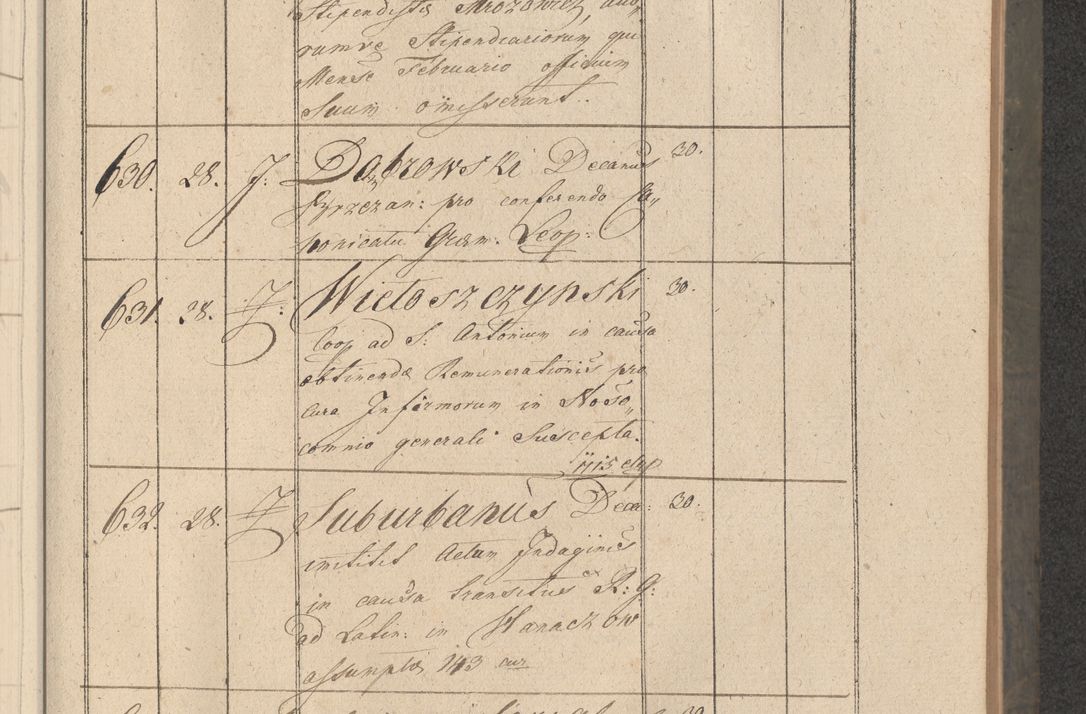 Stipendistæ Mrozowicz, alio,,
rumve Stipendiariorum qui
Mense Februario officium
Suum omisserunt.
630. 28. J. Dobrowski Decanus 30.
pro conferendo Ca,,
nonicatu Græm. Leop:
631. 28. J. Wieloszczynski 30.
Coop ad S: Antonium in causa
obtinendæ Remunerationis pro
cura Infirmorum in Noso,,
comnio generali Suscepta.
632. 28. J. Suburbanus Decan: 30.
mittit Actum Indaginis
in causa transitus R: G:
ad Latin: in Hanaczow
assumptæ 143 cur